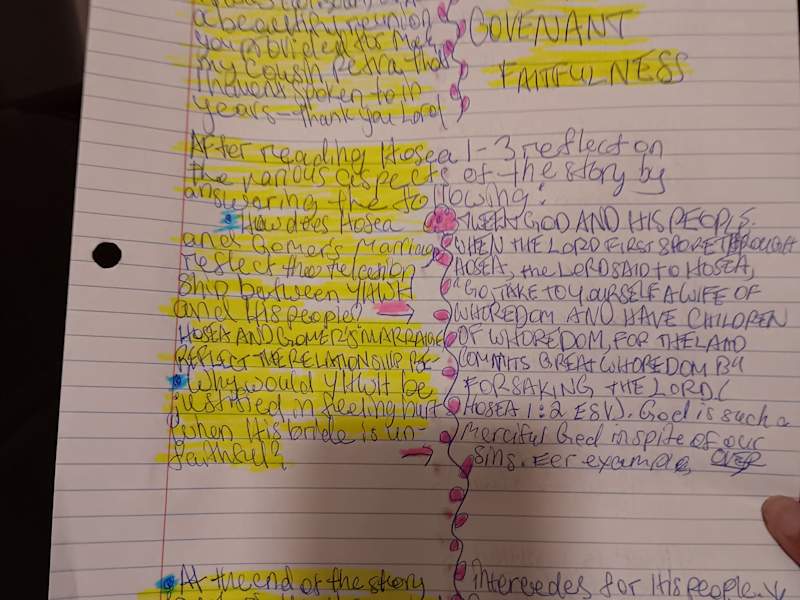 a beautiful reunion
you provided for me &
my cousin Petra that
I havent spoken to in
years - thank you Lord
COVENANT
FAITFULNESS
After reading Hosea 1-3 reflect on
the various aspects of the story by
answering the following:
How does Hosea
and Gomer's Marriage
reflect the relation
ship between YHWH
and His people?
HOSEA AND GOMER'S MARRIAGE
REFLECT THE RELATIONSHIP BE-
TWEEN GOD AND HIS PEOPLE.
WHEN THE LORD FIRST SPOKE THROUGH
HOSEA, the LORD SAID TO HOSEA,
"GO, TAKE TO YOURSELF A WIFE OF
WHOREDOM AND HAVE CHILDREN
OF WHOREDOM, FOR THE LAND
COMMITS GREAT WHOREDOM BY
FORSAKING THE LORD. (
HOSEA 1:2 ESV). God is such a
Merciful God in spite of our
Sins. For example, OVER
Why would YHWH be
justified in feeling hurt
when His bride is un-
faithful?
At the end of the story
intercedes for His people.